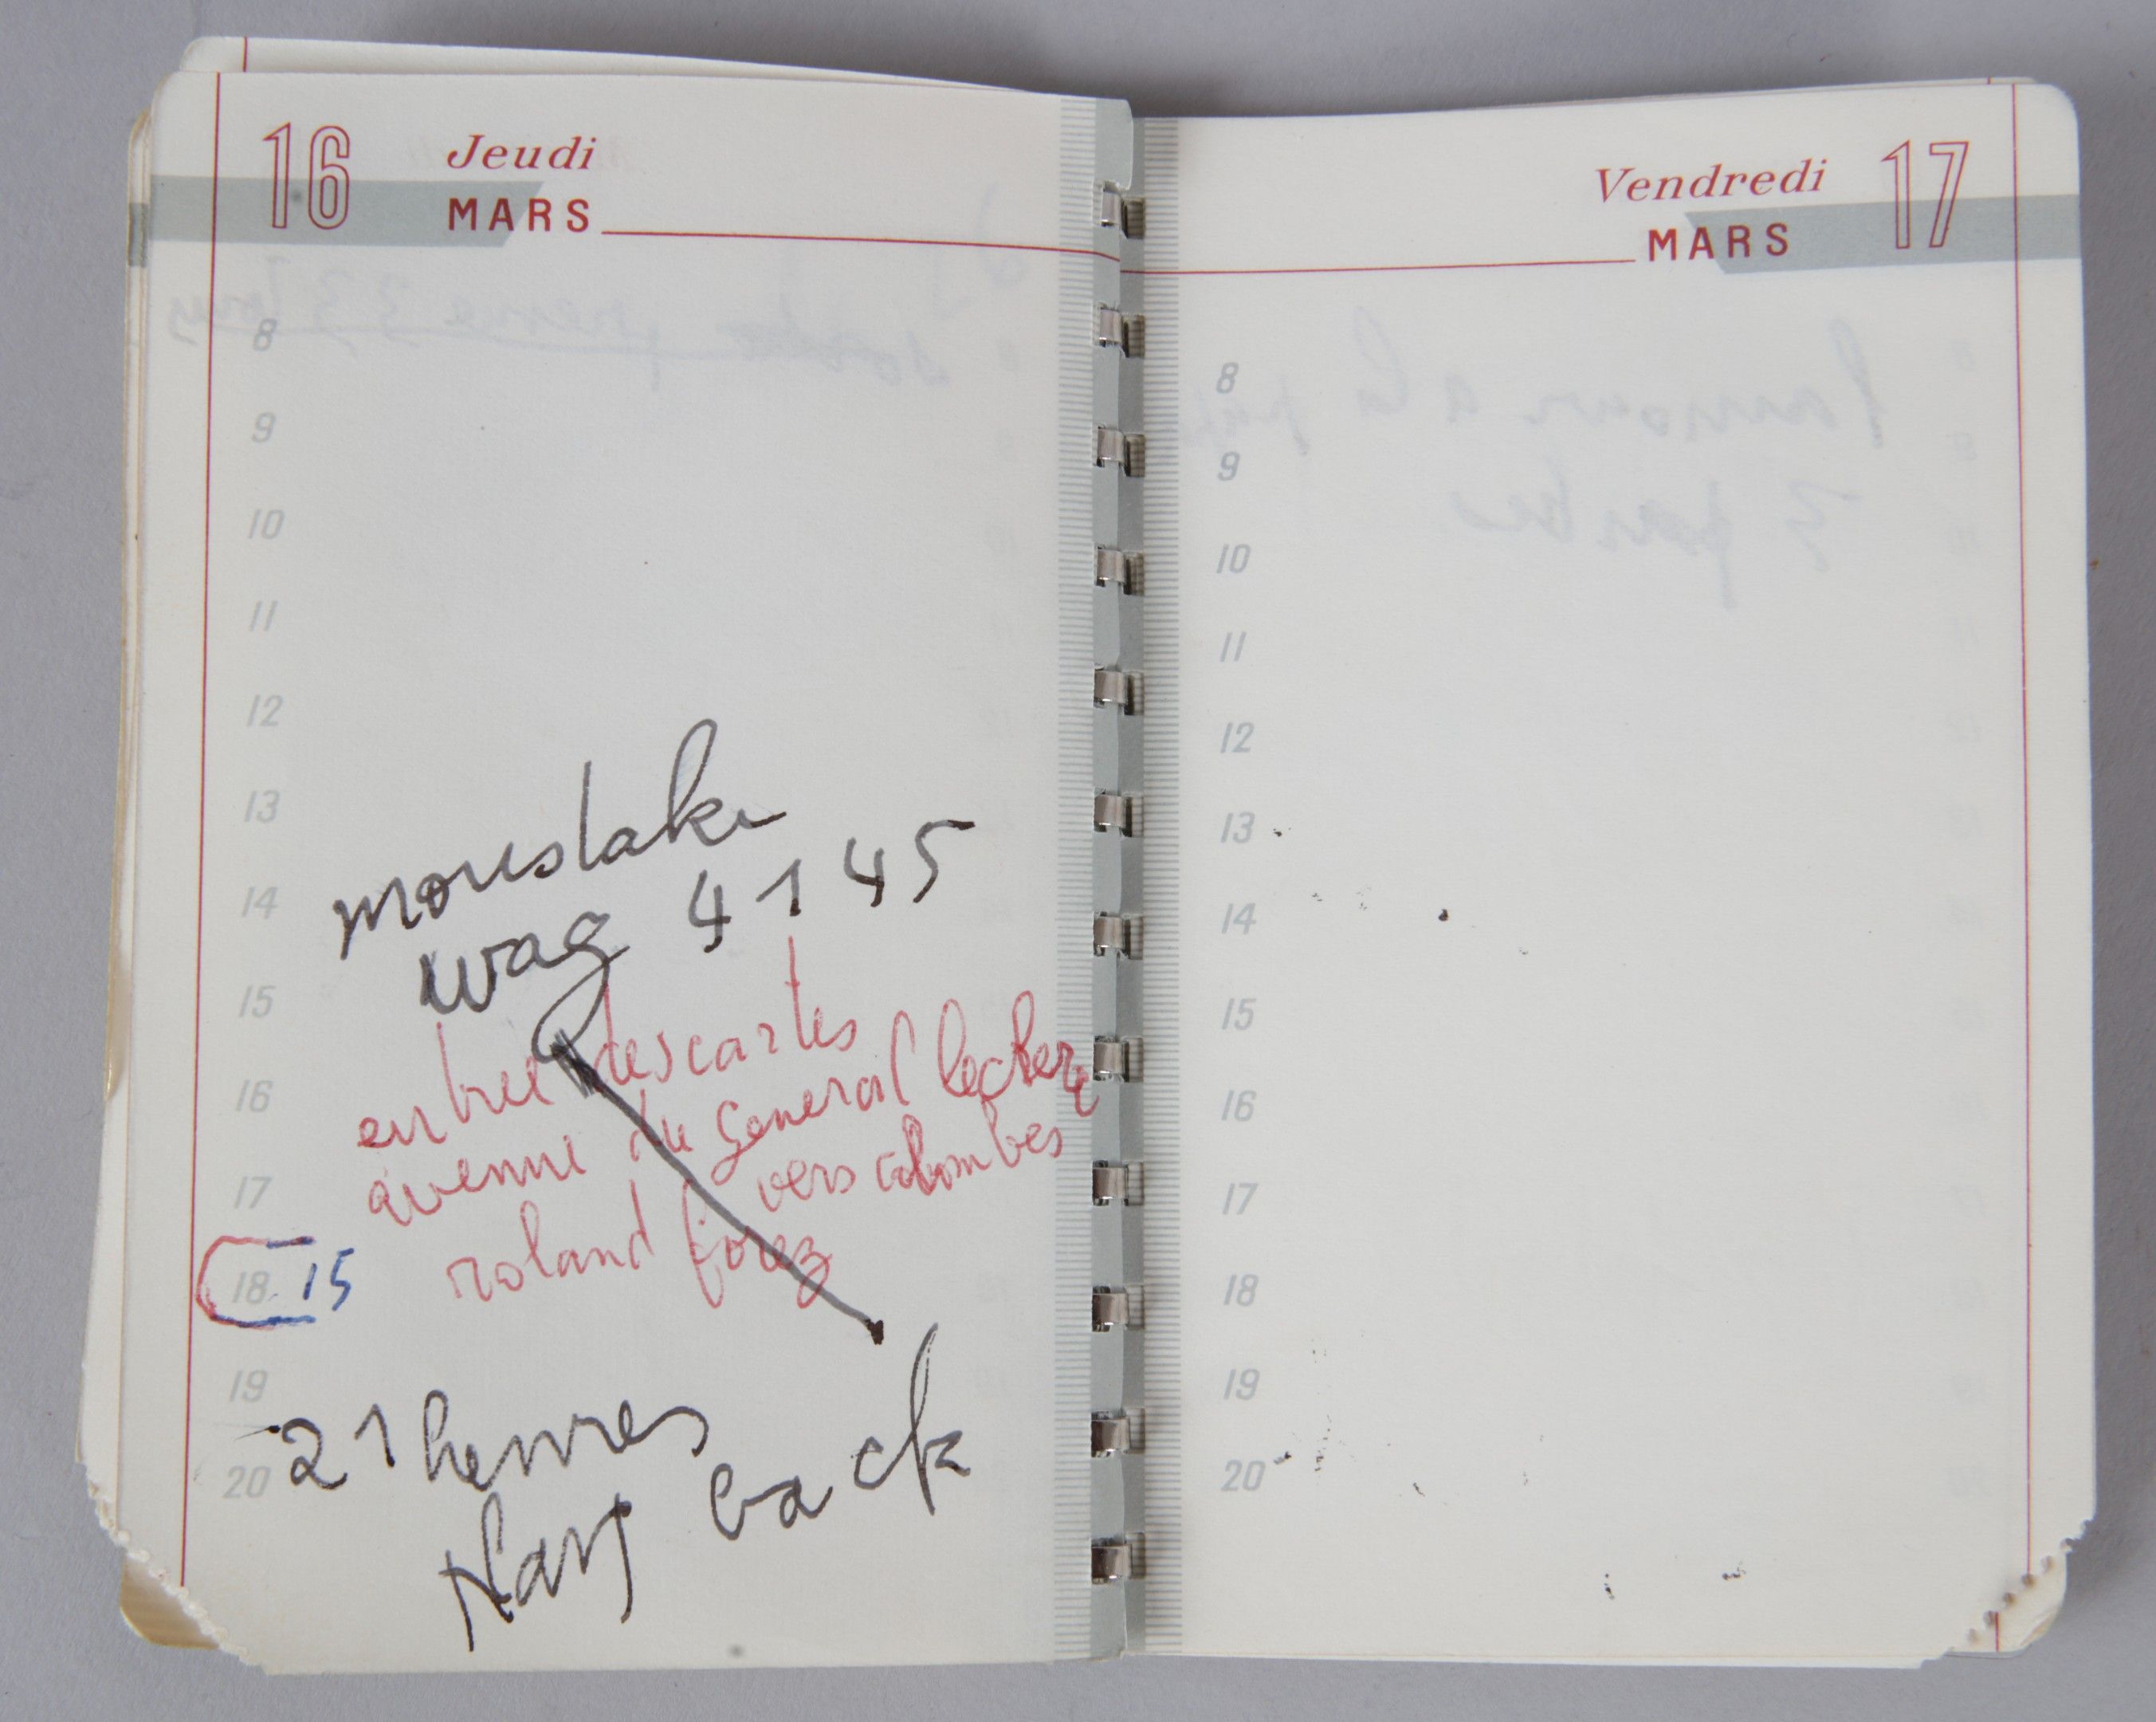 16 Jeudi
MARS
8
9
10
11
12
13
14
15
16
17
18 15
19
20
moustaki
wag 41 45
entrée descartes
avenue du general leclerc
vers colombes
roland forez
21 heures
play back
Vendredi 17
MARS
8
9
10
11
12
13
14
15
16
17
18
19
20